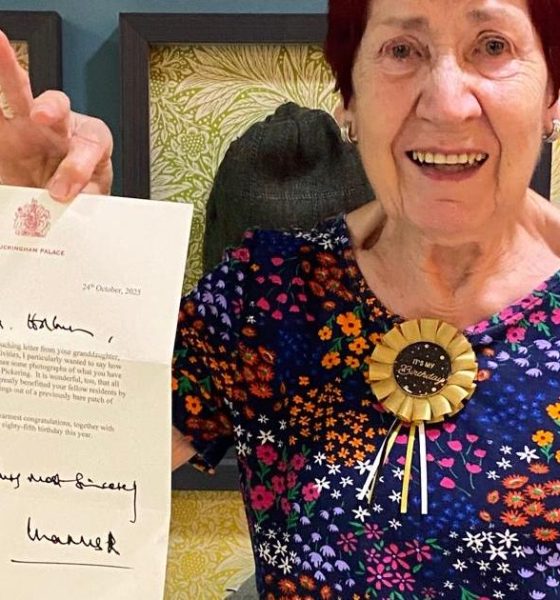 UCKINGHAM PALACE
24th October, 2025
uching letter from your granddaughter,
ivities, I particularly wanted to say how
ee some photographs of what you have
Pickering. It is wonderful, too, that all
reatly benefitted your fellow residents by
ngs out of a previously bare patch of
armest congratulations, together with
eighty-fifth birthday this year.
most sincerely
Charles R
IT'S MY
Birthday